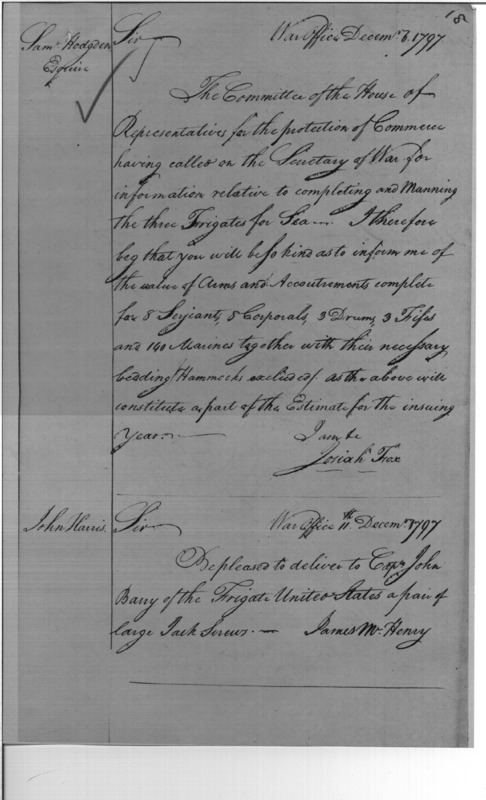 18
Sam.l Hodgdon
Esquire
Sir War Office Decem.r 6. 1797
The Committee of the House of
Representatives for the protection of Commerce
having called on the Secretary of War for
information relative to completing and Manning
the three Frigates for Sea. I therefore
beg that you will be so kind as to inform me of
the value of Arms and Accoutrements complete
for 8 Serjeants, 8 Corporals, 3 Drums, 3 Fifes
and 140 Marines together with their necessary
bedding (Hammocks excluded) as the above will
constitute a part of the Estimate for the insuing
Year.
I am &c
Josiah Fox
John Harris. Sir War Office 11th Decem.r 1797
Be pleased to deliver to Cap.t John
Barry of the Frigate United States a pair of
large Jack Screws. James McHenry